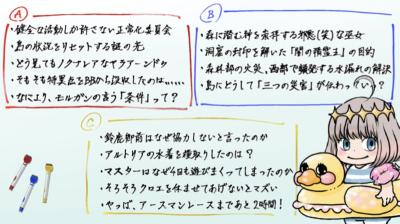 A
・健全な活動しか許さない正常化委員会
・島の状況をリセットする謎の光
・どう見てもノクナレアなヤラアーンドゥ
・そもそも特異点をBBから没収したのは……
・なにより、モルガンの言う「条件」って?
B
・森に潜む神を崇拝する邪悪(笑)な巫女
・洞窟の封印を解いた「闇の精霊王」の目的
・森林部の火災、西部で頻発する水漏れの解決
・島にどうして「三つの災害」が伝わっ
C
・鈴鹿御前はなぜ協力しないと言ったのか
・アルトリアの水着を横取りしたのは?
・マスターはなぜ今日も遊びまくってしまったのか
・そろそろクロエを休ませてあげないとマズい
・やっば、アースマンレースまであと2時間!